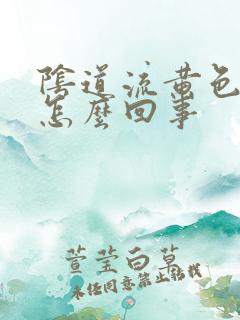 陰道流黃色
怎麼回事
萱莹白草
未经同意禁止转载